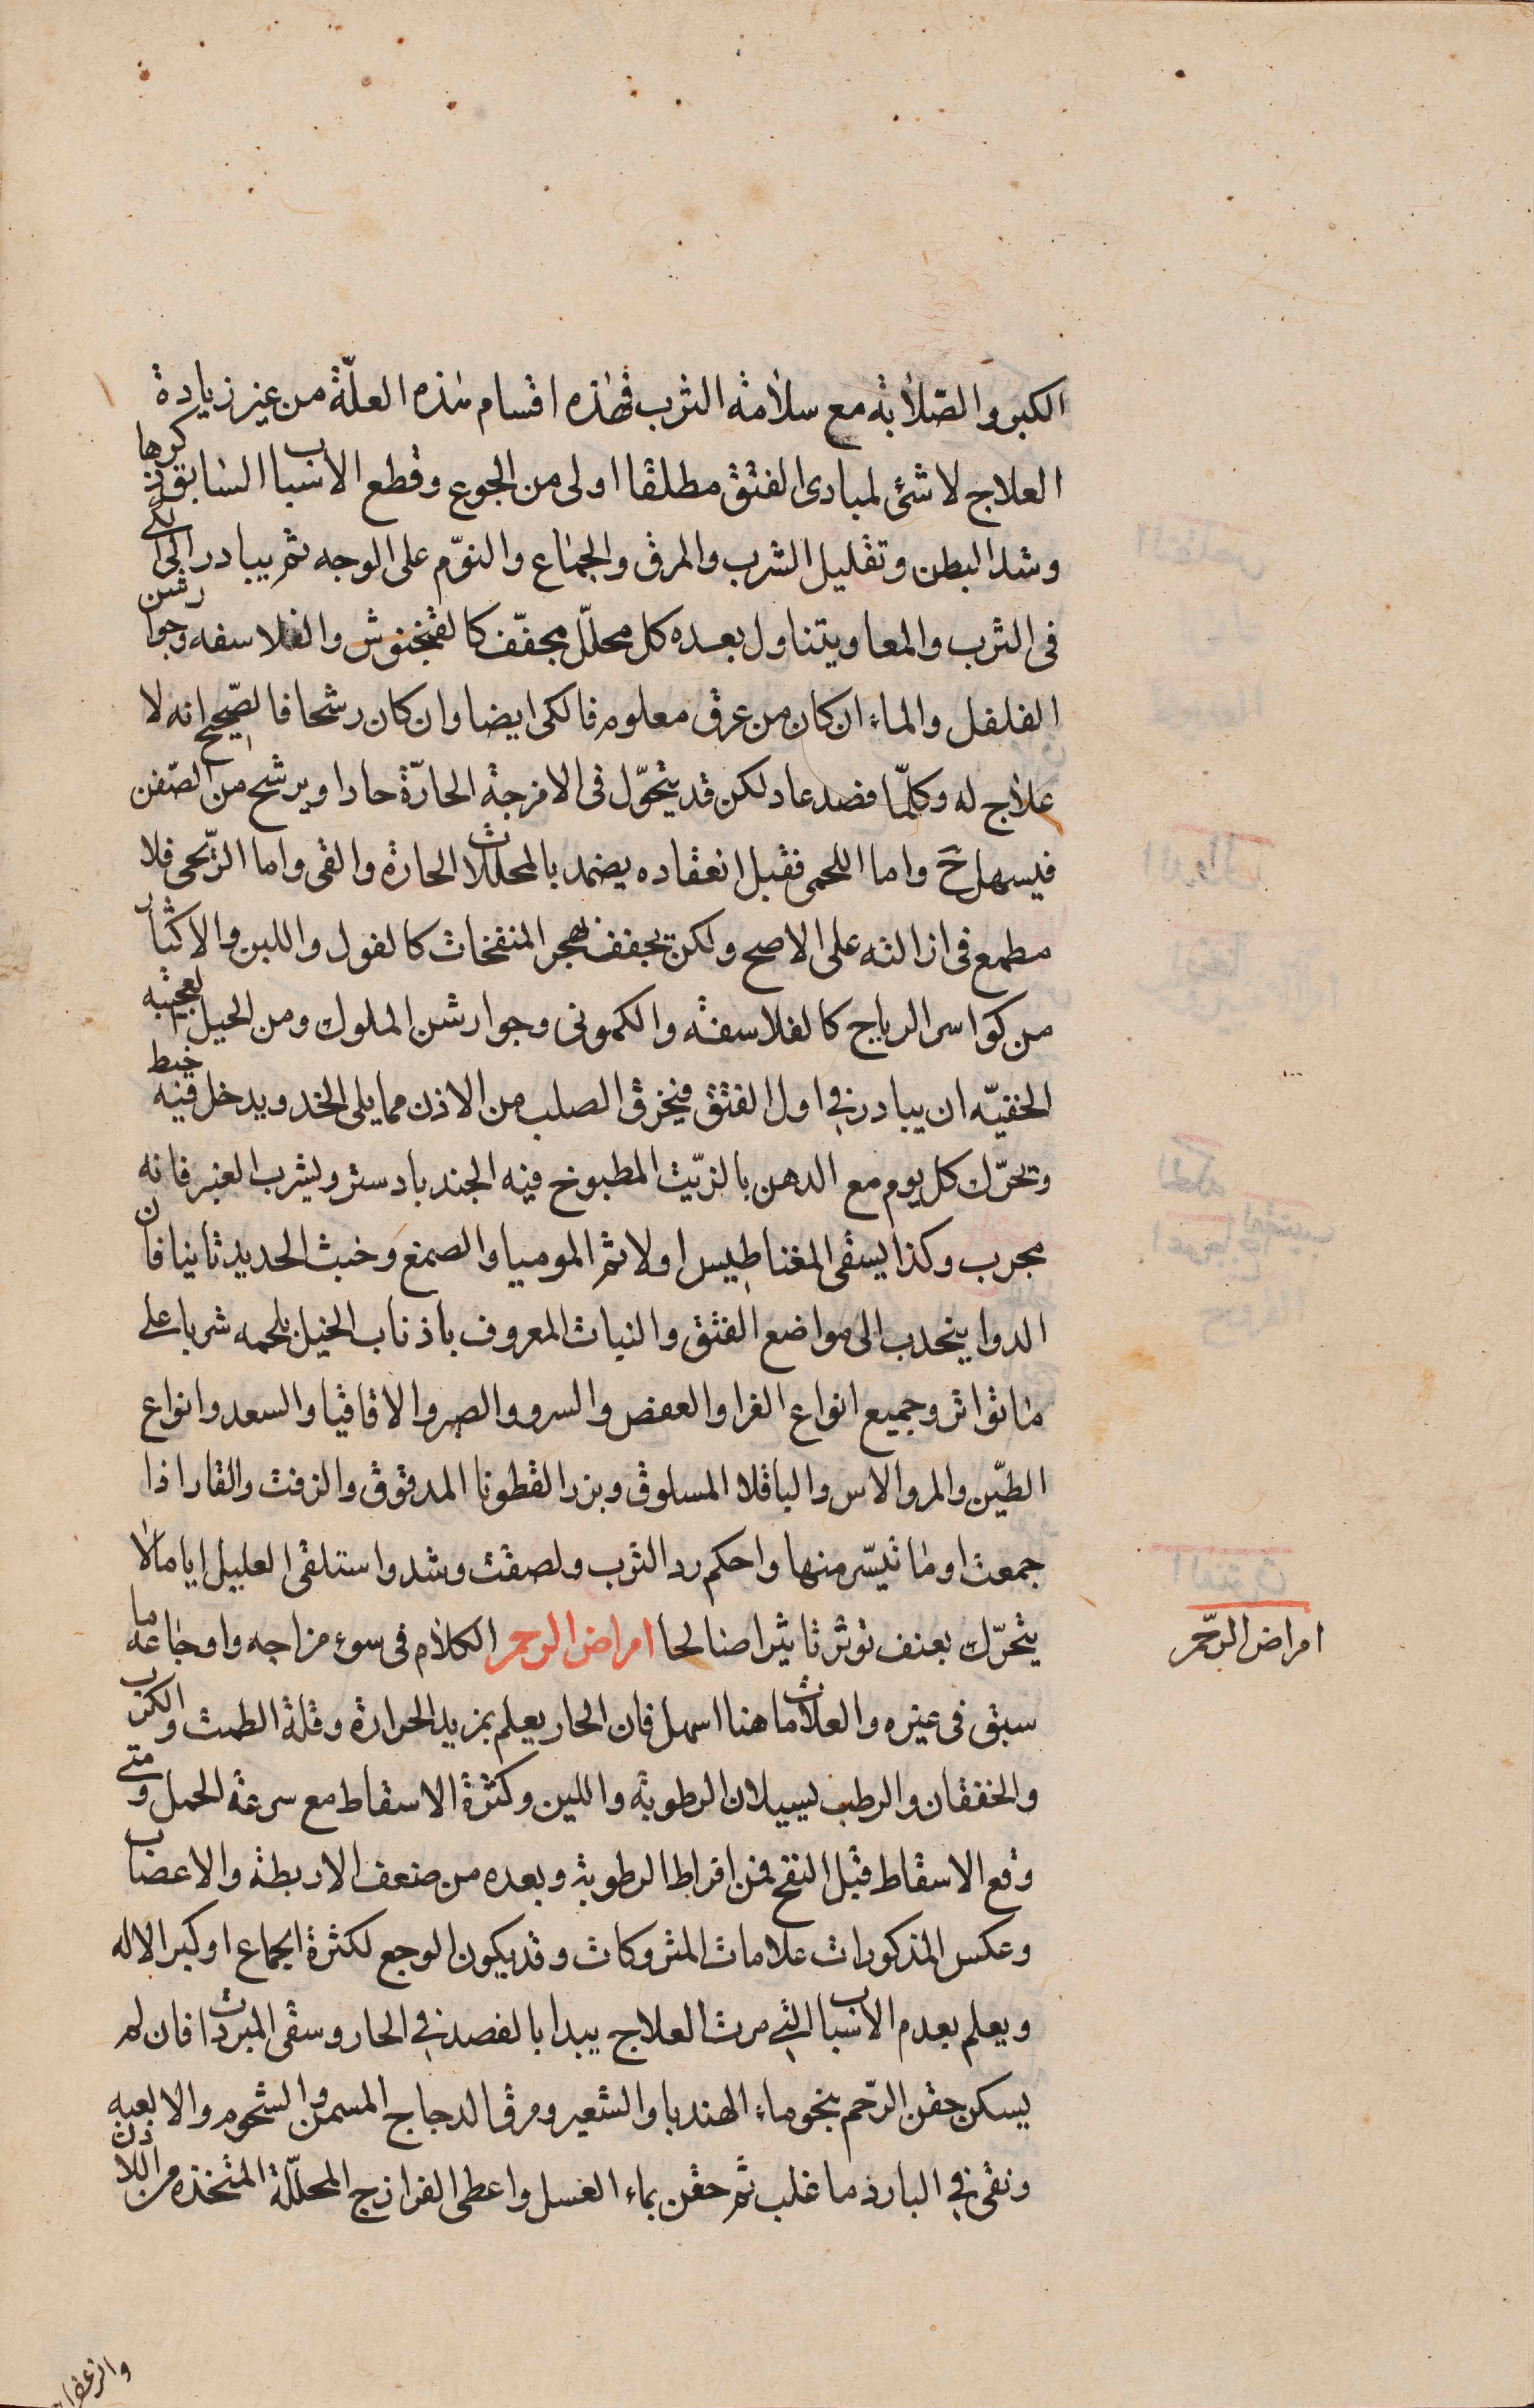 الكبر والصّلابة مع سلامة الثرب فهذه اقسام هذه العلّة من غير زيادة
العلاج لا شئ لمبادى الفتق مطلقا اولى من الجوع وقطع الاسباب السابق ذكرها
وشد البطن وتقليل الشرب والمرق والجماع والنوّم على الوجه ثم يبادر الى الكى
فى الثرب والمعا ويتناول بعده كل محلّل مجفّف كالفنجنوش والفلاسفه وجوارشن
الفلفل والماء ان كان من عرق معلوم فالكى ايضا وان كان رشحا فالصّحيح انه لا
علاج له وكلّما فصد عاد لكن قد يتحوّل فى الامزجة الحارّة حادا ويرشح من الصّفن
فيسهل حَ واما اللحمى فقبل انعقاده يضمد بالمحللات الحارة والقى واما الرّيحى فلا
مطمع فى ازالته على الاصح ولكن يجفف بهجر المنفخات كالفول واللبن والاكثار
من كواسر الرياح كالفلاسفة والكمونى وجوارشن الملوك ومن الحيل العجيبه
الخفيّه ان يبادر فى اول الفتق فيخرق الصلب من الاذن مما يلى الخد ويدخل فيه خيط
وتحرّك كل يوم مع الدهن بالزّيت المطبوخ فيه الجندبادستر ويشرب العنبر فانه
مجرب وكذا يسقى المغناطيس اولا ثم الموميا والصمغ وخبث الحديد ثانيا فان
الدوا ينجدب الى مواضع الفتق والنبات المعروف باذناب الخيل يلحمه شربا على
ما تواتر وجميع انواع الغرا والعفص والسرو والصبر والاقاقيا والسعد وانواع
الطيّن والمر والاس والباقلا المسلوق وبزر القطونا المدقوق والزفت والقار اذا
جمعت او ما تيسّر منها واحكم رد الثرب ولصقت وشد واستلقى العليل اياما لا
يتحرّك بعنف توثر تاثيرا صالحا امراض الرحم الكلام فى سوء مزاجه واوجاعه ما
سبق فى غيره والعلامات هنا اسهل فان الحار يعلم بمزيد الحرارة وقلة الطمث والكرب
والخفقان والرطب لسيلان الرطوبة واللين وكثرة الاسقاط مع سرعة الحمل ومتى
وقع الاسقاط قبل النفخ فمن افراط الرطوبة وبعده من ضعف الاربطة والاعصاب
وعكس المذكورات علامات المتروكات وقد يكون الوجع لكثرة الجماع او كبر الاله
ويعلم بعدم الاسباب التى مرت العلاج يبدا بالفصد فى الحار وسقى المبردات فان لم
يسكن حقن الرّحم بنحو ماء الهندبا والشعير ومرق الدجاج المسمن والشحوم والالعبه
ونقى فى البارد ما غلب ثم حقن بماء العسل واعطى الفرازج المحلّلة المتخذه من اللادن
امراض الرّحم
والزعفران